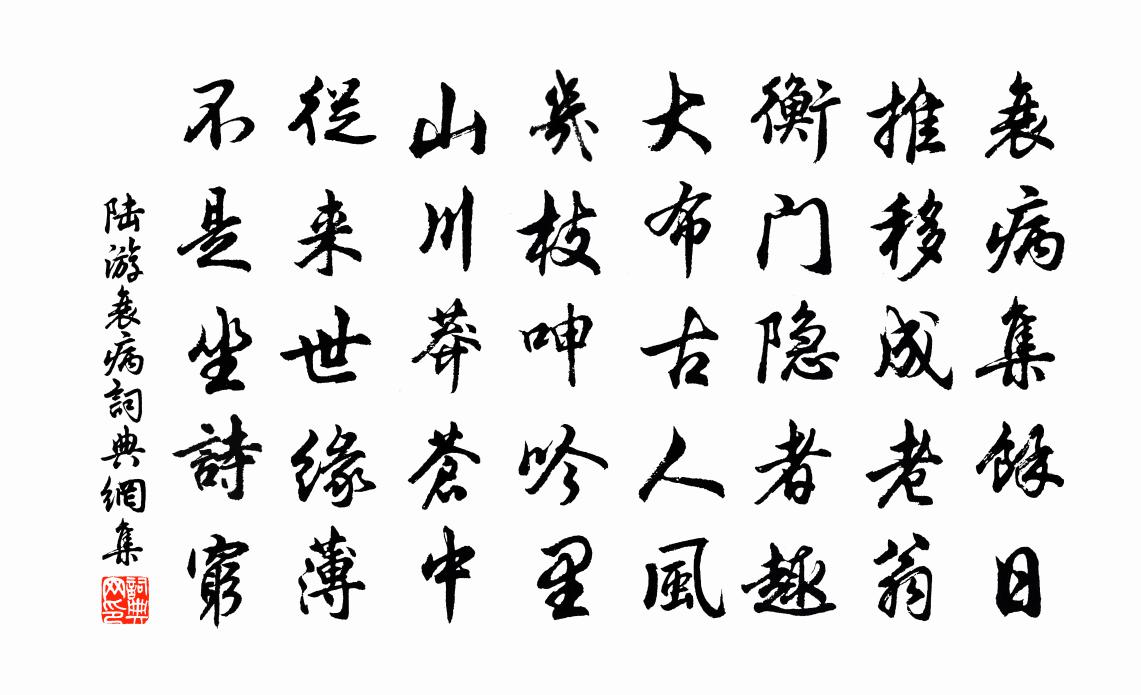 衰病集餘日
推移成老翁
衡门隐者趣
大布古人風
幾枝呻吟里
山川莽蒼中
從来世缘薄
不是坐詩窮
陆游衰病詞典網集
詞典网印